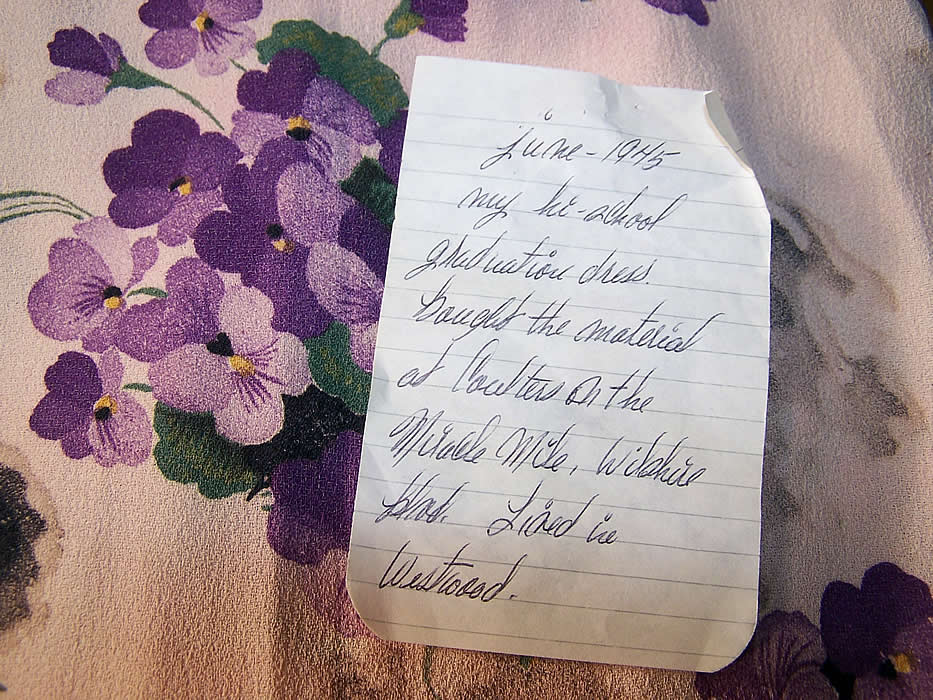 June - 1945
my hi-school
graduation dress.
Bought the material
at Coulters on the
Miracle Mile, Wilshire
blvd. Lived in
Westwood.